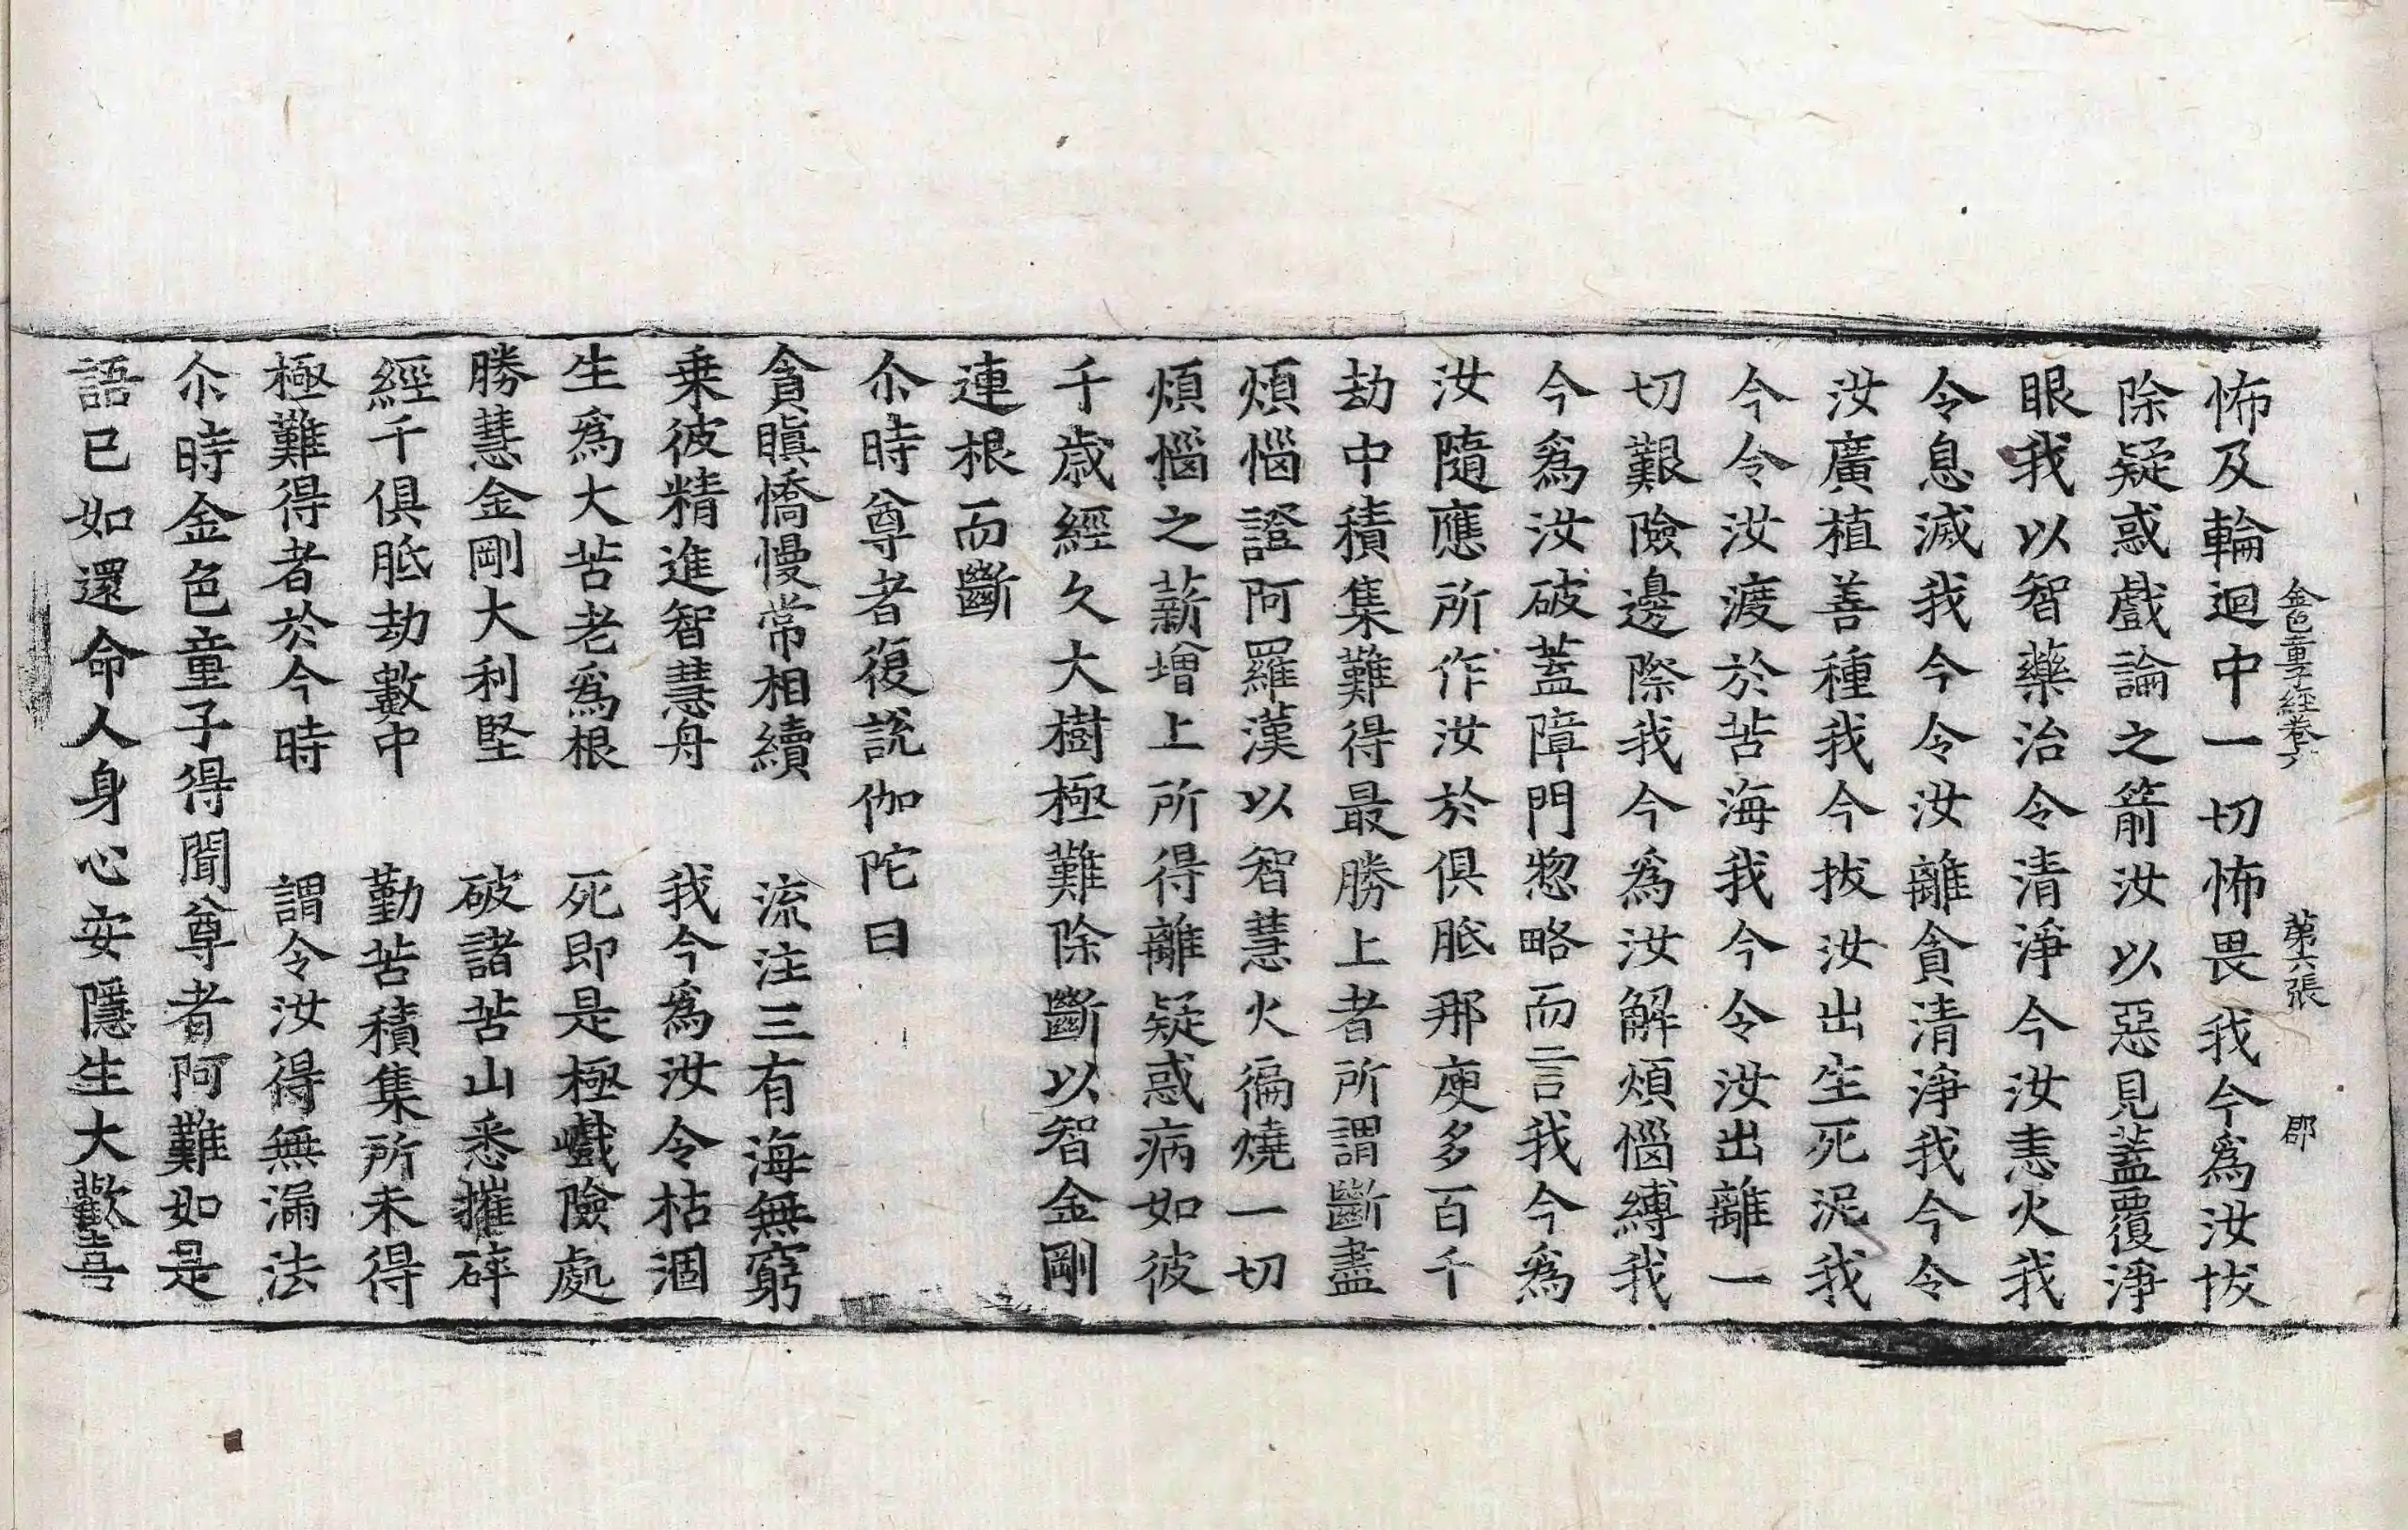 金色童子經卷六 第六張 郡
怖及輪迴中一切怖畏我今爲汝拔
除疑惑戲論之箭汝以惡見蓋覆淨
眼我以智藥治令清淨今汝恚火我
令息滅我今令汝離貪清淨我今令
汝廣植善種我今拔汝出生死泥我
今令汝渡於苦海我今令汝出離一
切艱險邊際我今爲汝解煩惱縛我
今爲汝破蓋障門惣略而言我今爲
汝隨應所作汝於俱胝那庾多百千
劫中積集難得最勝上者所謂斷盡
煩惱證阿羅漢以智慧火徧燒一切
煩惱之薪增上所得離疑惑病如彼
千歲經久大樹極難除斷以智金剛
連根而斷
尒時尊者復說伽陀曰
貪瞋憍慢常相續 流注三有海無窮
乗彼精進智慧舟 我今爲汝令枯涸
生爲大苦老爲根 死即是極巇險處
勝慧金剛大利堅 破諸苦山悉摧碎
經千俱胝劫數中 勤苦積集所未得
極難得者於今時 謂令汝得無漏法
尒時金色童子得聞尊者阿難如是
語已如還命人身心安隱生大歡喜